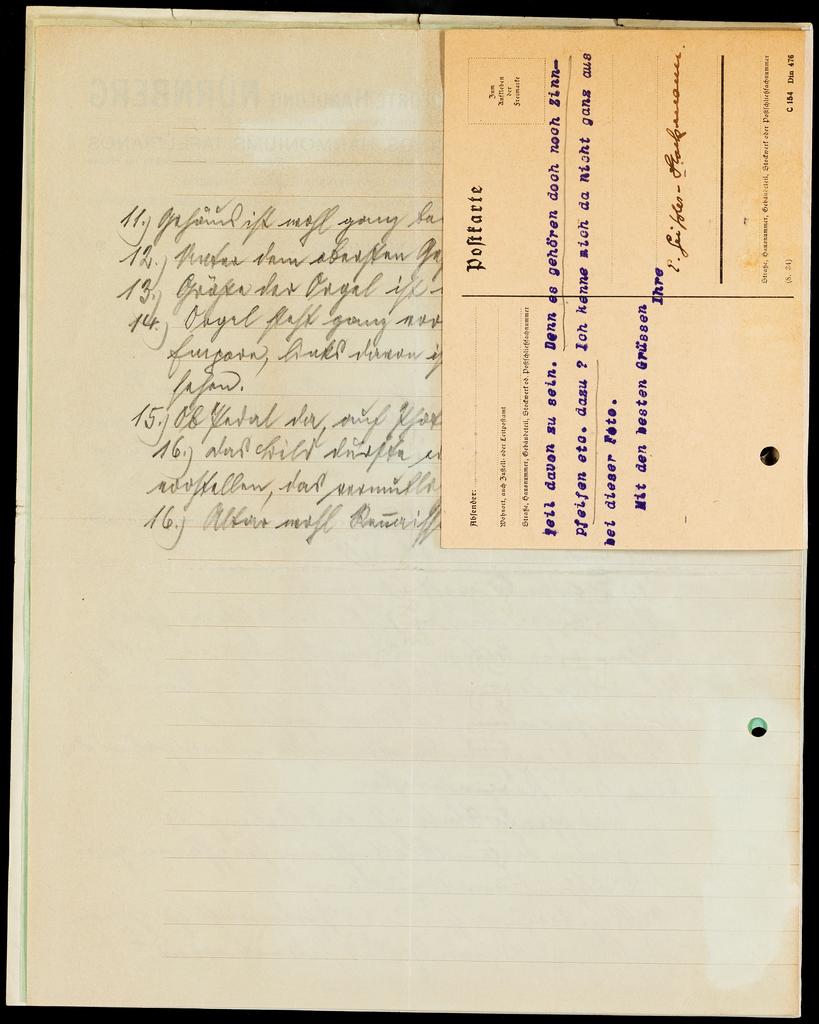 11.) Gehäus ist wohl ganz be
12.) Unter dem obersten Ge
13.) Größe der Orgel ist
14.) Orgel steht ganz vor
Empore, links davon is
sehen.
15.) Ob Pedal da, auf Phot
16.) das Bild dürfte
vorstellen, das vermutli
16.) Altar wohl Renaiss
Postkarte
Zum
Aufkleben
der
Freimarke
Absender:
Wohnort, auch Zustell- oder Leitpostamt
Straße, Hausnummer, Gebäudeteil, Stockwerk od. Postschließfachnummer
teil davon zu sein. Denn es gehören doch noch Zinn-
pfeifen etc. dazu ? Ich kenne mich da nicht ganz aus
bei dieser Foto.
Mit den besten Grüssen
Ihre
Straße, Hausnummer, Gebäudeteil, Stockwerk oder Postschließfachnummer
(8. 34)
C 154 Din 476
NÜRNBERG
HARMONIUMS TAFELPIANOS